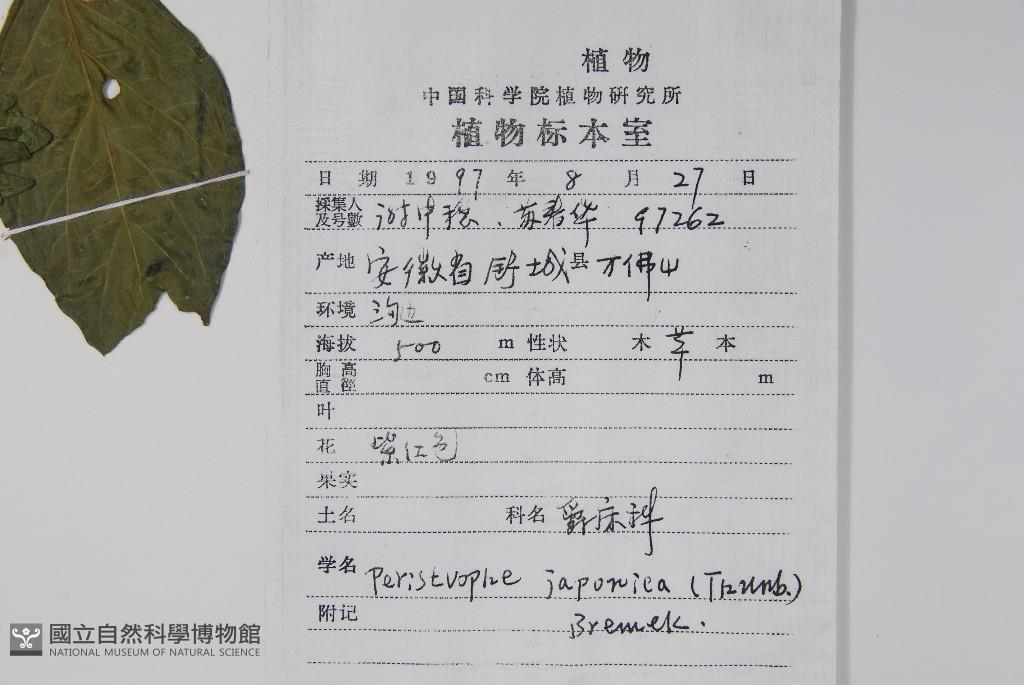 植物
中国科学院植物研究所
植物标本室
日 期 1997 年 8 月 27 日
採集人
及号數 苏春华 97262
产地 安徽省舒城县万佛山
环境 沟边
海拔 500 m 性状 木 草 本
胸高
直徑 cm 体高 m
叶
花 紫红色
果实
土名 科名 爵床科
学名 Peristrophe japonica (Thunb.)
附记 Bremek.
國立自然科學博物館
NATIONAL MUSEUM OF NATURAL SCIENCE